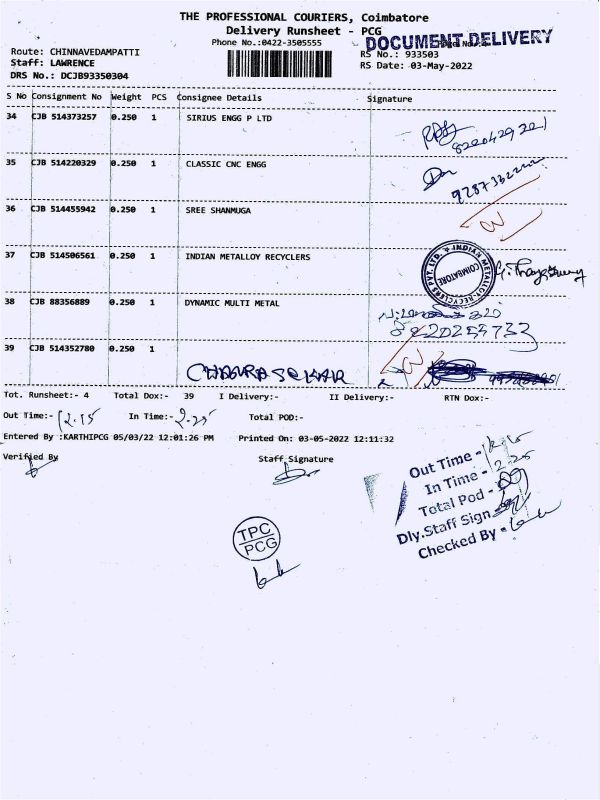 THE PROFESSIONAL COURIERS, Coimbatore
Delivery Runsheet - PCG
Phone No.:0422-3505555
DOCUMENT DELIVERY
Route: CHINNAVEDAMPATTI
Staff: LAWRENCE
DRS No.: DCJB93350304
RS No.: 933503
RS Date: 03-May-2022
S No Consignment No Weight PCS Consignee Details Signature
34 CJB 514373257 0.250 1 SIRIUS ENGG P LTD
8220429221
35 CJB 514220329 0.250 1 CLASSIC CNC ENGG
36 CJB 514455942 0.250 1 SREE SHANMUGA
37 CJB 514506561 0.250 1 INDIAN METALLOY RECYCLERS
INDIAN METALLOY RECYCLERS PVT. LTD.
COIMBATORE
38 CJB 88356889 0.250 1 DYNAMIC MULTI METAL
39 CJB 514352780 0.250 1
Tot. Runsheet:- 4 Total Dox:- 39 I Delivery:- II Delivery:- RTN Dox:-
Out Time:- 12.15 In Time:- 2.25 Total POD:-
Entered By :KARTHIPCG 05/03/22 12:01:26 PM Printed On: 03-05-2022 12:11:32
Verified By Staff Signature
Out Time -
In Time - 2.25
Total Pod -
Dly.Staff Sign
Checked By -
TPC
PCG